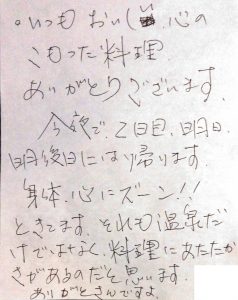 。いつも おいしい 心の
こもった料理
ありがとうございます。
今夜で、2日目、明日、
明後日には帰ります。
身体、心にズーン!!
ときてます。それも温泉だ
けではなく、料理にあたたか
さがあるのだと思います。
ありがとさんですよ